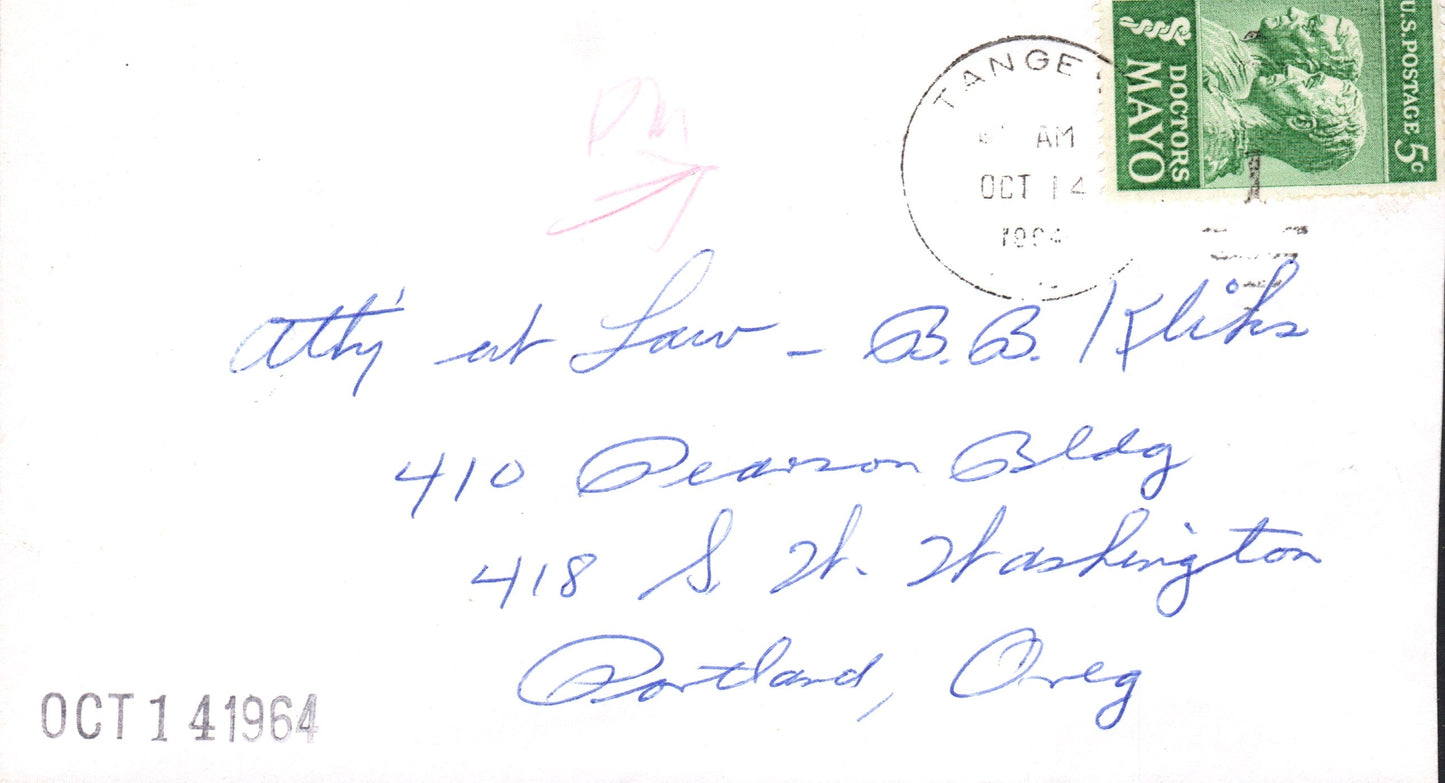 U.S. POSTAGE 5c
DOCTORS
MAYO
TANGE
AM
OCT 14
1964
Atty' at Law - B.B. Kliks
410 Pearson Bldg
418 S. W. Washington
Portland, Oreg
OCT 14 1964